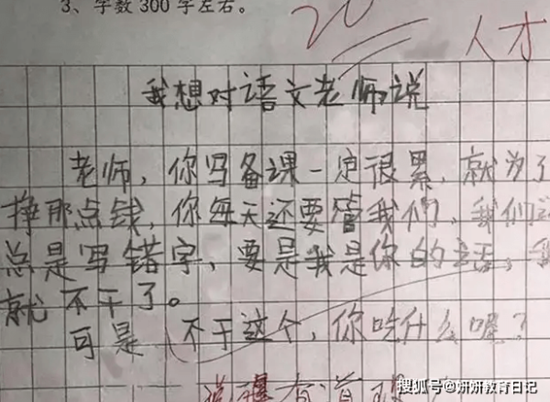 3、字数 300 字左右。
20
人才
我想对语文老师说
老师，你写备课一定很累，就为了
挣那点钱，你每天还要管我们，我们
总是写错字，要是我是你的话，
就不干了。
可是，不干这个，你吃什么喔？
有道理
搜狐号@妍妍教育日记